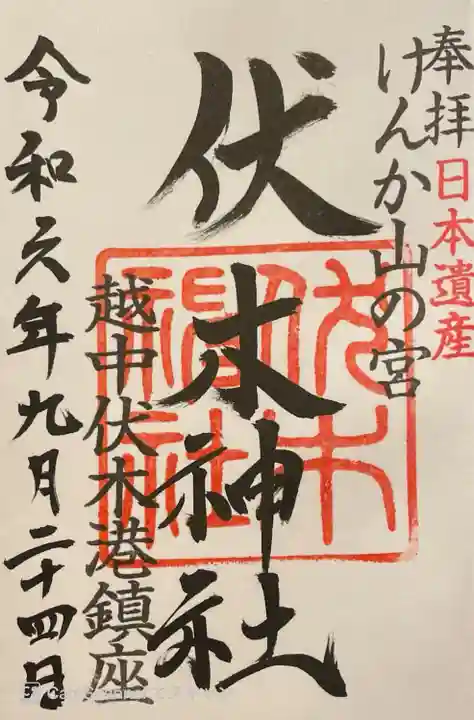 奉拝
日本遺産
けんか山の宮
伏木神社
伏木神社
越中伏木港鎮座
令和六年九月二十四日